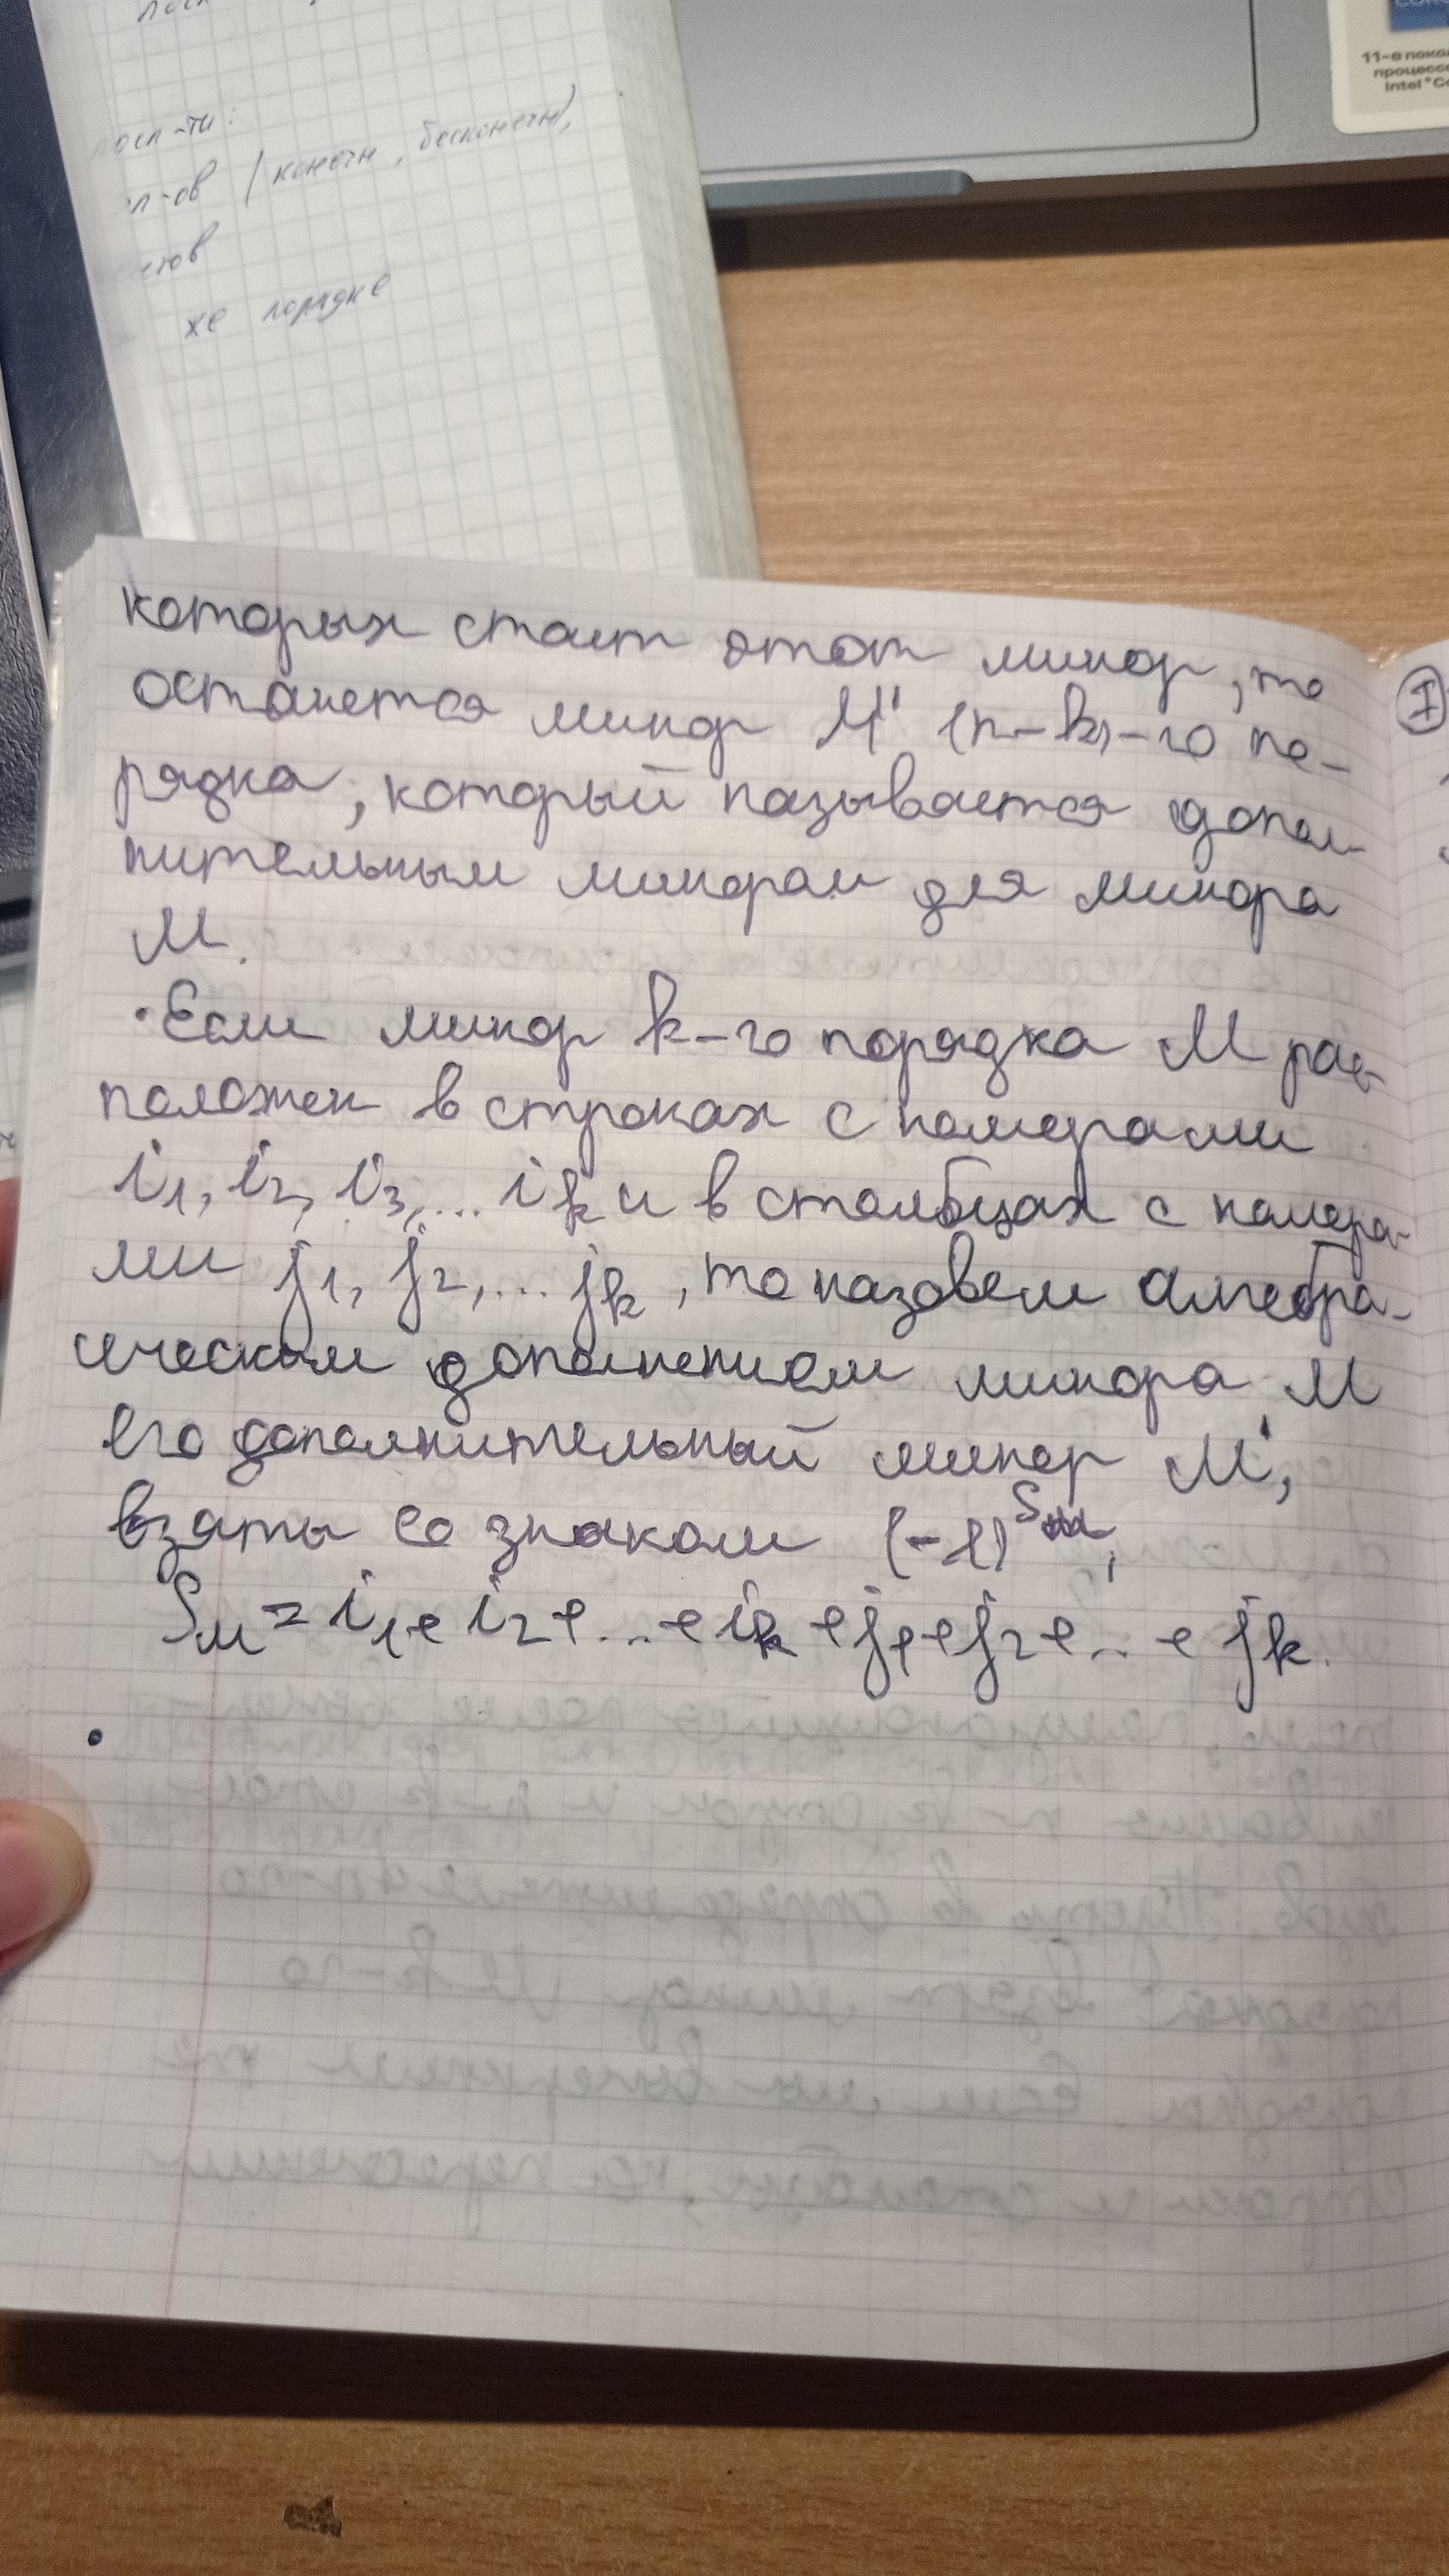 11-е поко
процессо
Intel® Co
посл-ти:
л-ов (конечн, бесконечн),
же порядке
которых стоит этот минор, то
останется минор M' (n-k)-го по-
рядка, который называется допол-
нительным минором для минора
M.
• Если минор k-го порядка M рас-
положен в строках с номерами
i₁, i₂, i₃, ... iₖ и в столбцах с номера-
ми j₁, j₂, ... jₖ, то назовем алгебра-
ическим дополнением минора M
его дополнительный минор M',
взяты со знаком (-1)^Sм,
Sм = i₁ + i₂ + ... + iₖ + j₁ + j₂ + ... + jₖ.
I